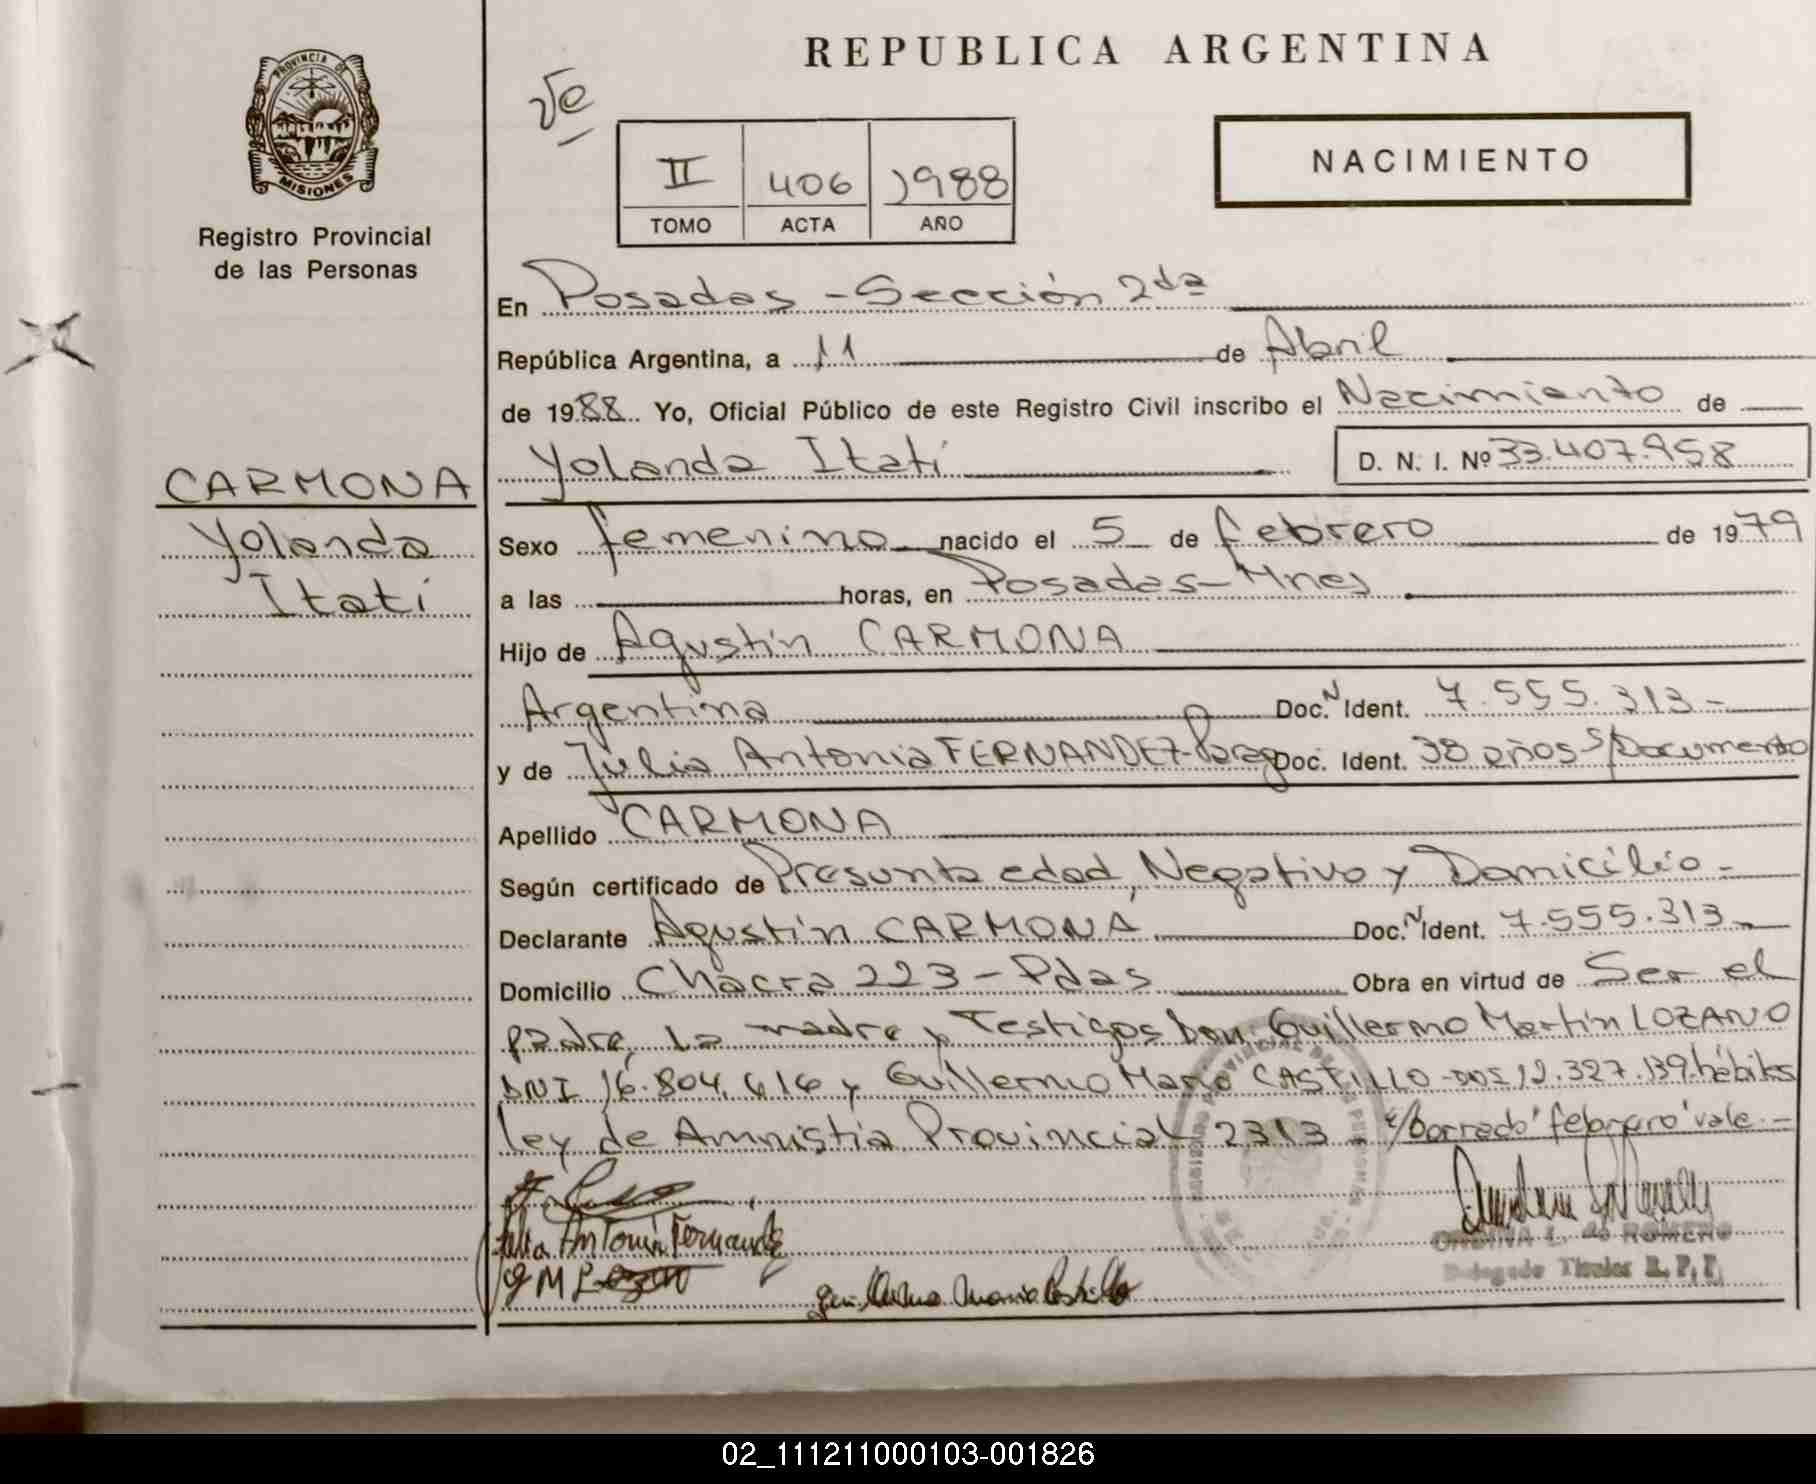 REPUBLICA ARGENTINA
PROVINCIA DE
MISIONES
Registro Provincial
de las Personas
II 406 1988
TOMO ACTA AÑO
NACIMIENTO
En Posadas - Sección 2da
República Argentina, a 11 de Abril
de 1988 Yo, Oficial Público de este Registro Civil inscribo el Nacimiento de
Yolanda Itatí D. N. I. Nº 33.407.958
CARMONA
Yolanda
Itatí
Sexo femenino nacido el 5 de febrero de 1979
a las horas, en Posadas - Mnes
Hijo de Agustín CARMONA
Argentina Doc. N Ident. 7.555.313 -
y de Julia Antonia FERNANDEZ - Parag Doc. Ident. 38 años s/Documento
Apellido CARMONA
Según certificado de Presunta edad, Negativo y Domicilio -
Declarante Agustín CARMONA Doc. N Ident. 7.555.313 -
Domicilio Chacra 223 - Pdas Obra en virtud de Ser el
padre, la madre y Testigos Don: Guillermo Martín LOZANO
DNI 16.804.616 y Guillermo Mario CASTILLO - DOS 12.327.139 hábiles
ley de Amnistía Provincial 2313 - E/borrado "febrero" vale -
Julia Antonia Fernandez
G M Lozano
Guillermo Mario Castillo
ONDINA L. de ROMERO
Delegado Titular R. P. P.
02_111211000103-001826